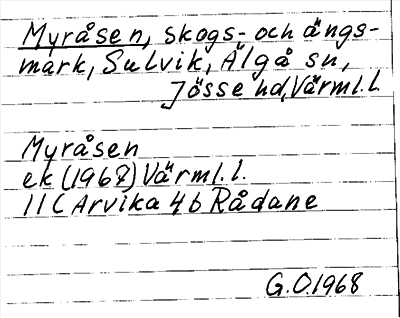 Myråsen, skogs- och ängs-
mark, Sulvik, Älgå sn,
Jösse hd, Värml. l.
Myråsen
ek (1967) Värml. l.
11C Arvika 4b Rådane
G.O. 1968